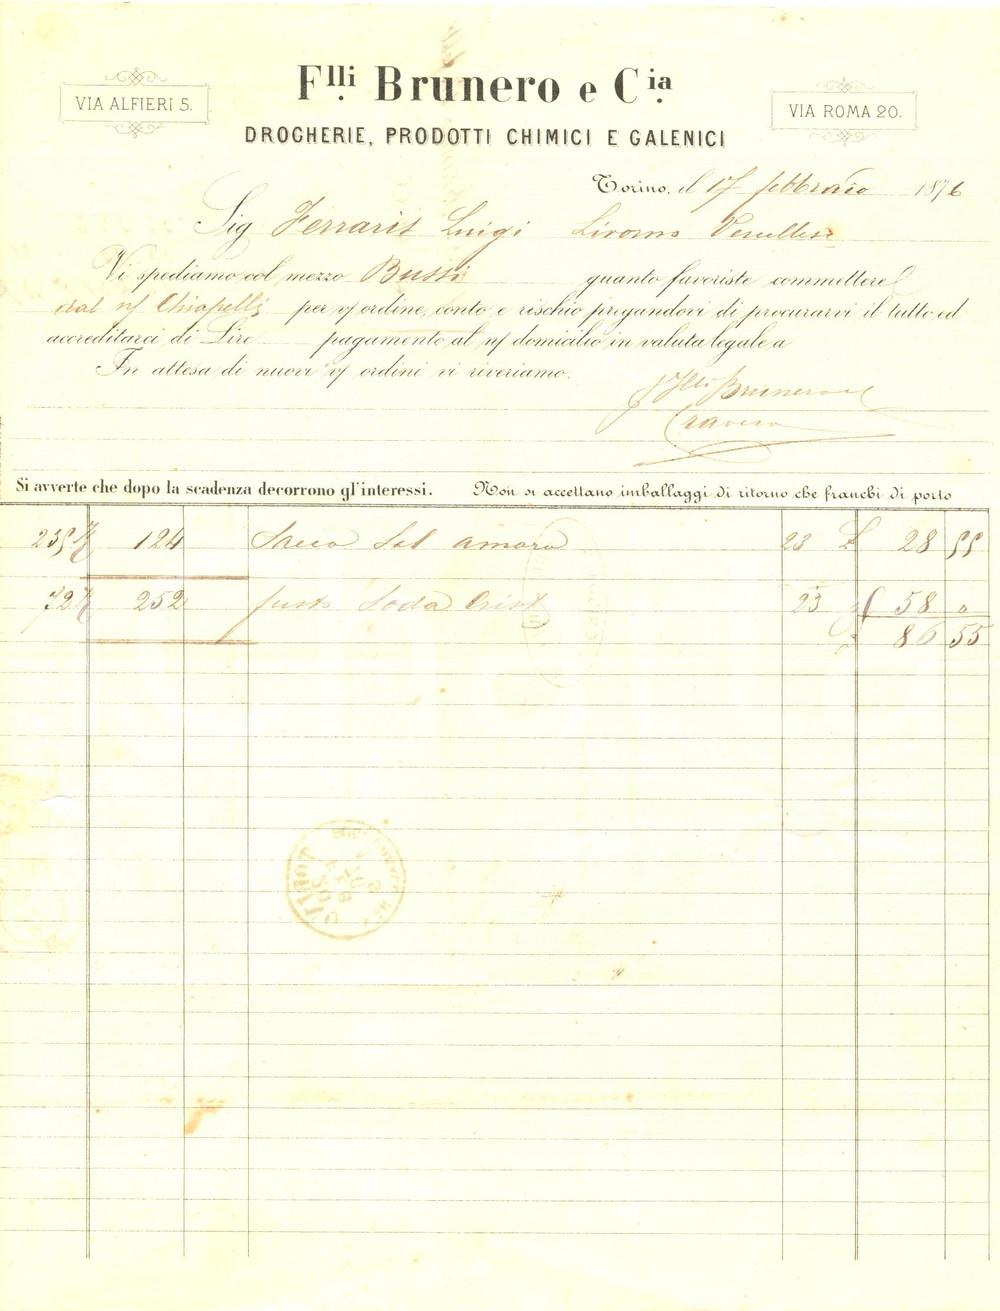 Flli Brunero e Cia
VIA ALFIERI 5.
VIA ROMA 20.
DROGHERIE, PRODOTTI CHIMICI E GALENICI
Torino, il 17 febbraio 1876
Sig Ferraris Luigi Livorno Vercellese
Vi spediamo col mezzo Bussi quanto favoriste commettere
dal n/ Chiapelli per v/ ordine, conto e rischio pregandovi di procurarvi il tutto ed
accreditarci di Lire pagamento al n/ domicilio in valuta legale a
In attesa di nuovi v/ ordini vi riveriamo.
Flli Brunero e C
Cravero
Si avverte che dopo la scadenza decorrono gl'interessi. Non si accettano imballaggi di ritorno che franchi di porto
124 Sacco Sal amaro 23 £ 28 55
72 252 fusto Soda Crist 23 58 "
£ 86 55
TORINO